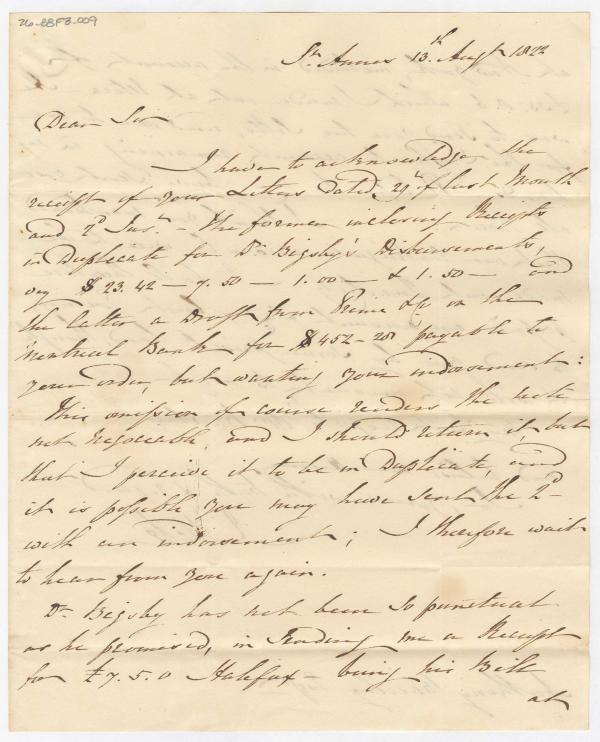 26-BBF3-009
St. Annes 13th Augt 1822
Dear Sir
I have to acknowledge the
receipt of your Letters dated 29th of last Month
and 2d Inst. - the former inclosing Receipts
in Duplicate for Dr Bigsby's Disbursements,
say $23.42 — 7.50 — 1.00 — & 1.50 — and
the latter a Draft from Prime &c on the
Montreal Bank for $452-20 payable to
your order, but wanting your indorsement:
This omission of course renders the note
not negociable and I should return it, but
that I perceive it to be in Duplicate, and
it is possible you may have sent the 2d
with an indorsement; I therefore wait
to hear from you again.
Dr Bigsby has not been so punctual
as he promised, in sending me a Receipt
for £7.5.0 Halifax - being his Bill
at